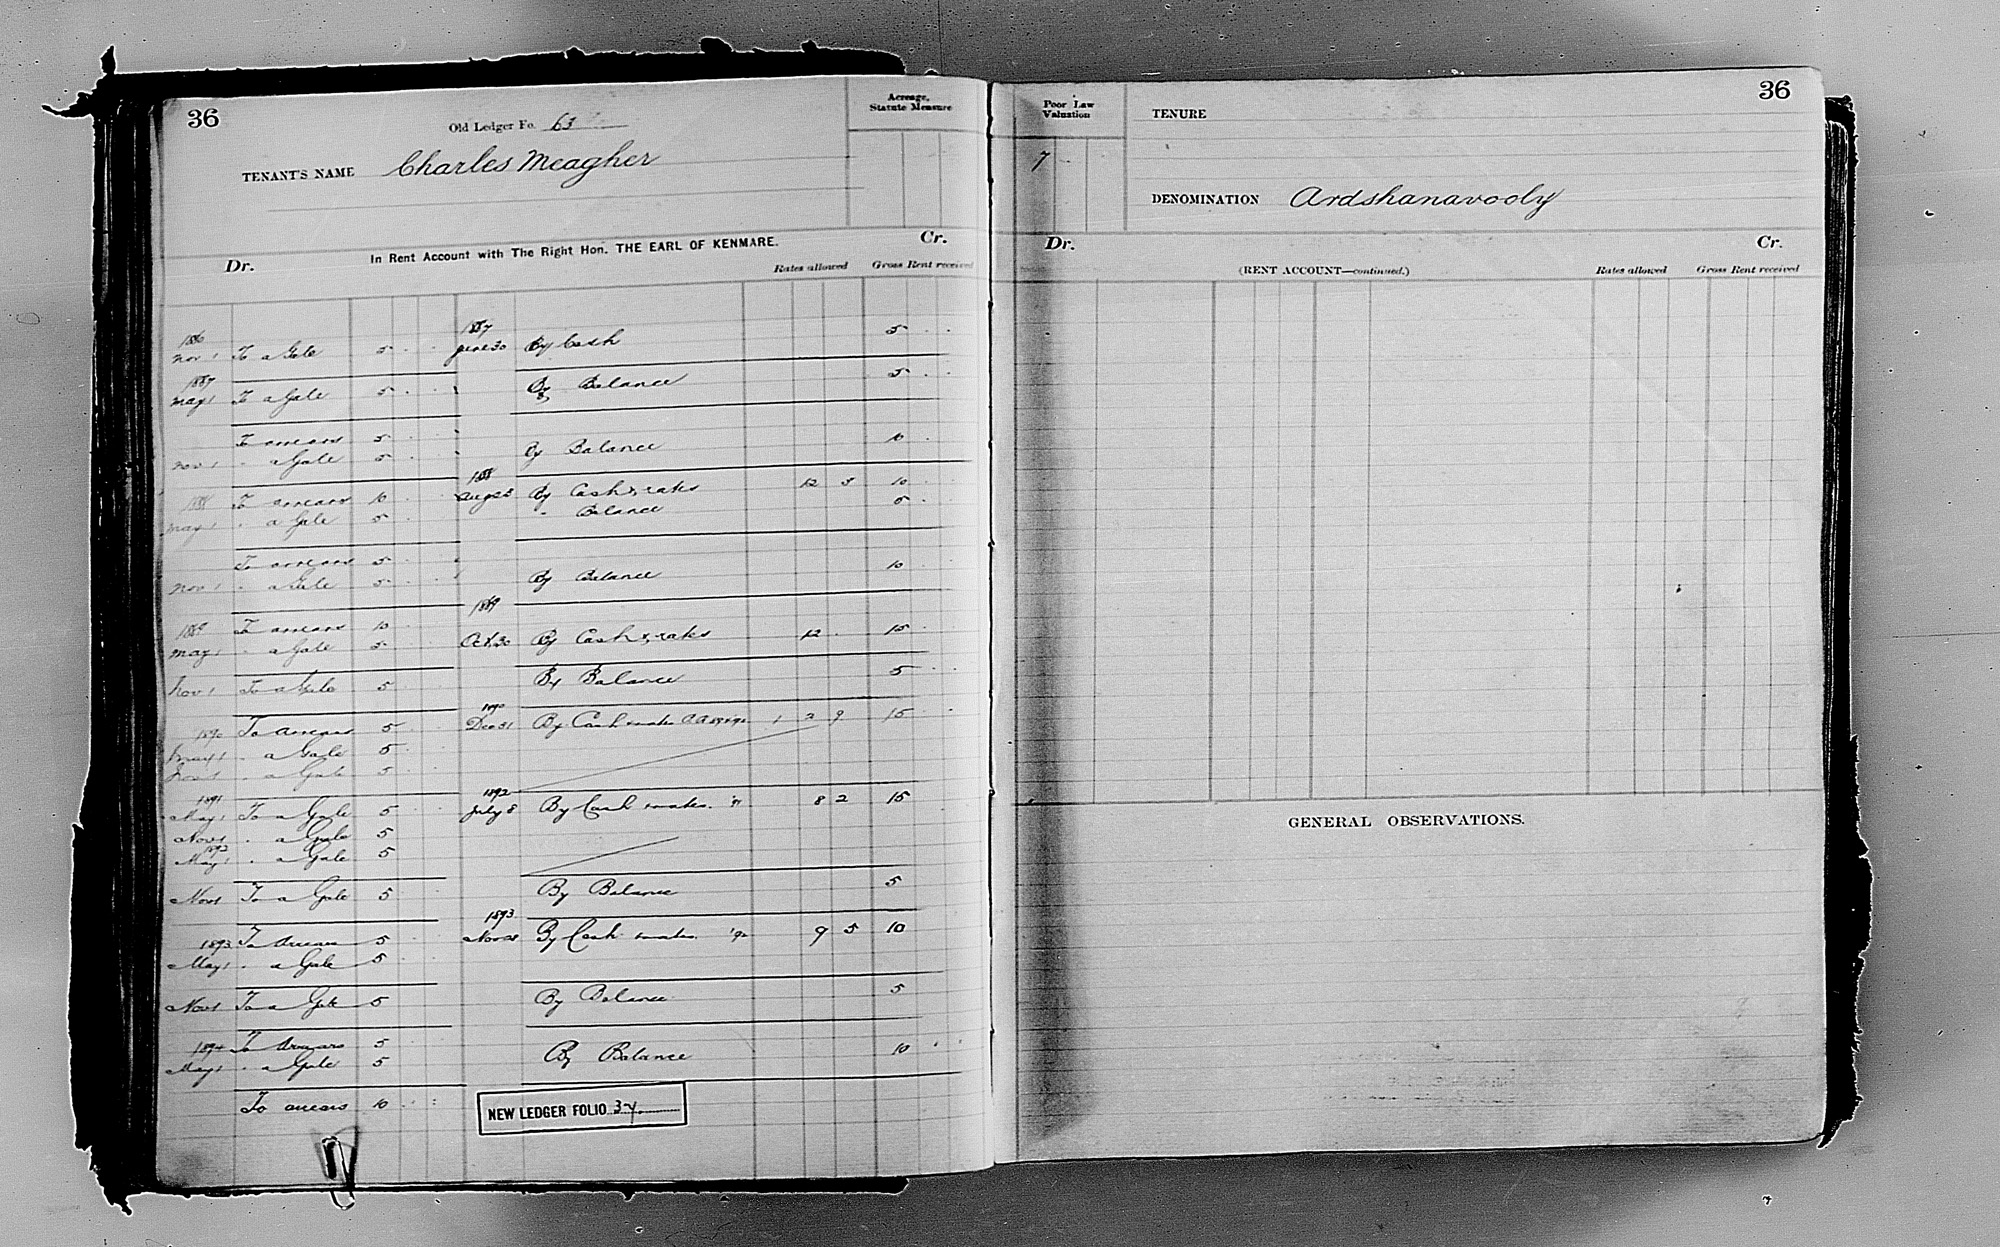 36
Old Ledger Fo. 63
Acreage, Statute Measure
TENANT'S NAME Charles Meagher
In Rent Account with The Right Hon. THE EARL OF KENMARE.
Dr. Cr.
Rates allowed Gross Rent received
1886 1887
Nov 1 To a Gale 5 June 30 By Cash 5
1887
May 1 To a Gale 5 By Balance 5
To arrears 5
Nov 1 " a Gale 5 By Balance 10
1888
1888 To arrears 10 Aug 23 By Cash & rates 12 3 10
May 1 " a Gale 5 " Balance 5
To arrears 5
Nov 1 " a Gale 5 By Balance 10
1889
1889 To arrears 10
May 1 " a Gale 5 Oct 30 By Cash & rates 12 15
Nov 1 To a Gale 5 By Balance 5
1890
To Arrears 5 Dec 31 By Cash & rates 1 2 9 15
1890
May 1 " a Gale 5
Nov 1 " a Gale 5
1891 1892
May 1 To a Gale 5 July 8 By Cash & rates '91 8 2 15
Nov 1 " a Gale 5
1892
May 1 " a Gale 5
Nov 1 To a Gale 5 By Balance 5
1893
1893 To Arrears 5 Nov By Cash & rates '92 9 5 10
May 1 " a Gale 5
Nov 1 To a Gale 5 By Balance 5
1894 To Arrears 5
May 1 " a Gale 5 By Balance 10
To arrears 10
NEW LEDGER FOLIO 34
36
Poor Law Valuation
7
TENURE
DENOMINATION Ardshanavooly
Dr. Cr.
(RENT ACCOUNT—continued.)
Rates allowed Gross Rent received
GENERAL OBSERVATIONS.